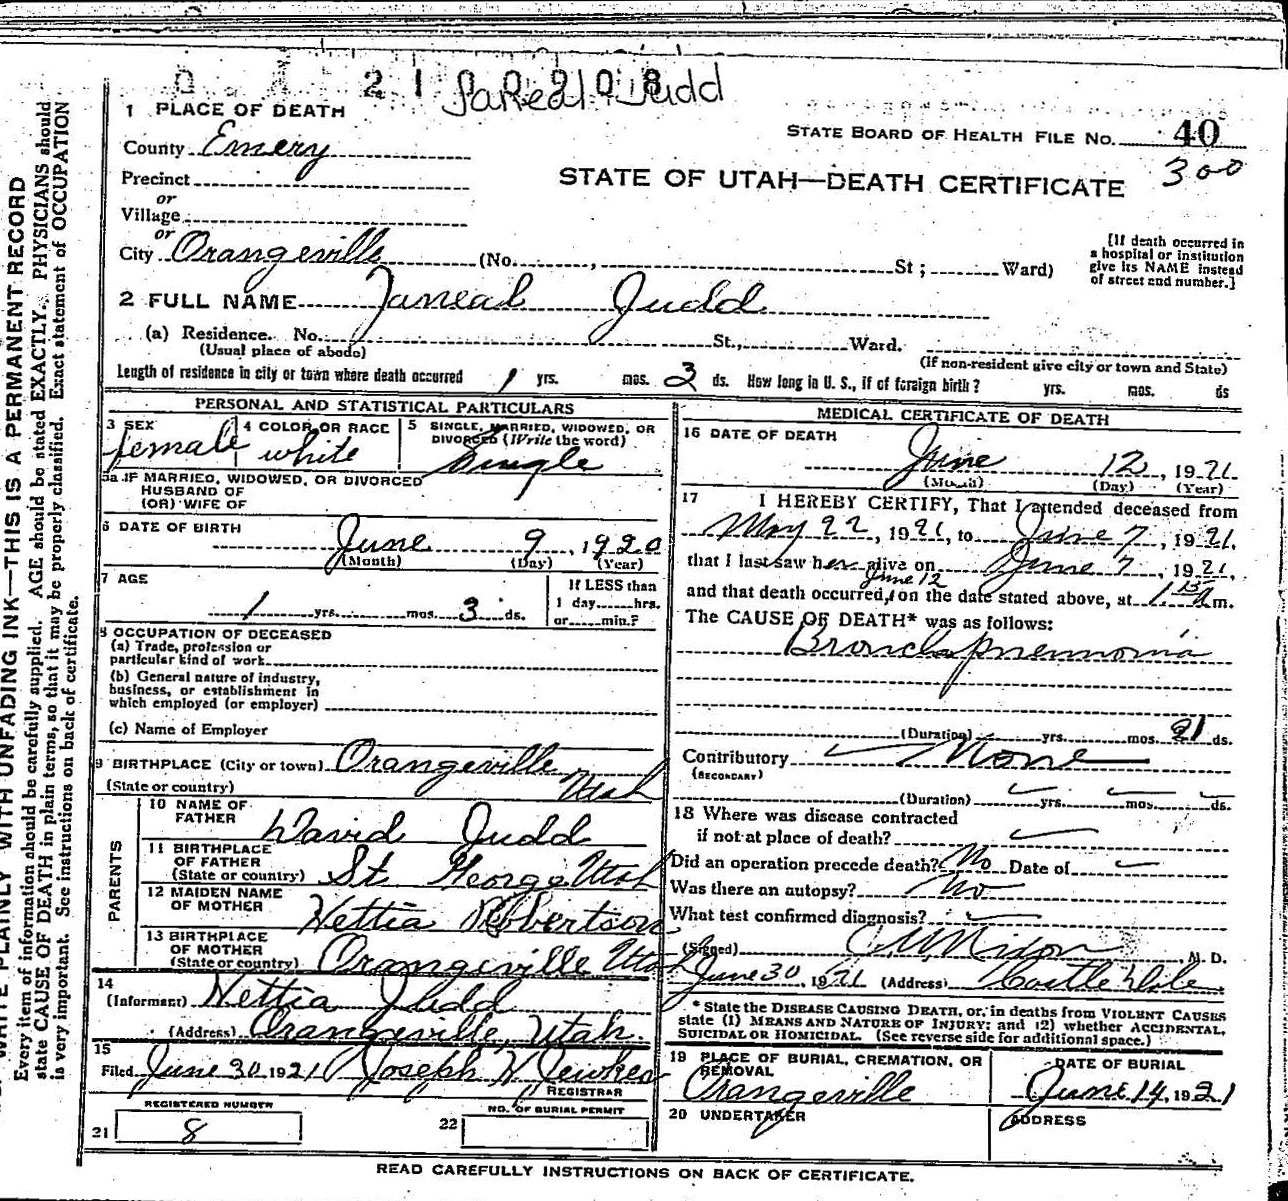 2100908
Janeal Judd
1 PLACE OF DEATH
STATE BOARD OF HEALTH FILE No. 40
County Emery
300
STATE OF UTAH—DEATH CERTIFICATE
Precinct
or
Village
or
City Orangeville (No. , St ; Ward)
[If death occurred in
a hospital or institution
give its NAME instead
of street and number.]
2 FULL NAME Janeal Judd
(a) Residence. No. St., Ward.
(Usual place of abode)
(If non-resident give city or town and State)
Length of residence in city or town where death occurred 1 yrs. mos. 3 ds. How long in U. S., if of foreign birth? yrs. mos. ds
PERSONAL AND STATISTICAL PARTICULARS
3 SEX
female
4 COLOR OR RACE
white
5 SINGLE, MARRIED, WIDOWED, OR
DIVORCED (Write the word)
Single
5a IF MARRIED, WIDOWED, OR DIVORCED
HUSBAND OF
(OR) WIFE OF
6 DATE OF BIRTH
June 9, 1920
(Month) (Day) (Year)
7 AGE
1 yrs. mos. 3 ds.
If LESS than
1 day hrs.
or min.?
8 OCCUPATION OF DECEASED
(a) Trade, profession or
particular kind of work
(b) General nature of industry,
business, or establishment in
which employed (or employer)
(c) Name of Employer
9 BIRTHPLACE (City or town) Orangeville
(State or country) Utah
PARENTS
10 NAME OF
FATHER David Judd
11 BIRTHPLACE
OF FATHER
(State or country) St. George Utah
12 MAIDEN NAME
OF MOTHER Hettia Robertson
13 BIRTHPLACE
OF MOTHER
(State or country) Orangeville Utah
14
(Informant) Hettia Judd
(Address) Orangeville, Utah.
15
Filed June 30 1921 Joseph W Jewkes
REGISTRAR
REGISTERED NUMBER
21 8
NO. OF BURIAL PERMIT
22
MEDICAL CERTIFICATE OF DEATH
16 DATE OF DEATH
June 12, 1921
(Month) (Day) (Year)
17 I HEREBY CERTIFY, That I attended deceased from
May 22, 1921, to June 7, 1921,
that I last saw her alive on June 7, 1921,
June 12
and that death occurred, on the date stated above, at 1 15 A m.
The CAUSE OF DEATH* was as follows:
Broncho pneumonia
(Duration) yrs. mos. 21 ds.
Contributory None
(SECONDARY)
(Duration) yrs. mos. ds.
18 Where was disease contracted
if not at place of death?
Did an operation precede death? No Date of
Was there an autopsy? No
What test confirmed diagnosis?
(Signed) M. D.
June 30, 1921 (Address) Castle Dale
* State the DISEASE CAUSING DEATH, or, in deaths from VIOLENT CAUSES
state (1) MEANS AND NATURE OF INJURY; and (2) whether ACCIDENTAL,
SUICIDAL OR HOMICIDAL. (See reverse side for additional space.)
19 PLACE OF BURIAL, CREMATION, OR
REMOVAL
Orangeville
DATE OF BURIAL
June 14, 1921
20 UNDERTAKER
ADDRESS
READ CAREFULLY INSTRUCTIONS ON BACK OF CERTIFICATE.
WRITE PLAINLY WITH UNFADING INK—THIS IS A PERMANENT RECORD
Every item of information should be carefully supplied. AGE should be stated EXACTLY. PHYSICIANS should
state CAUSE OF DEATH in plain terms, so that it may be properly classified. Exact statement of OCCUPATION
is very important. See instructions on back of certificate.